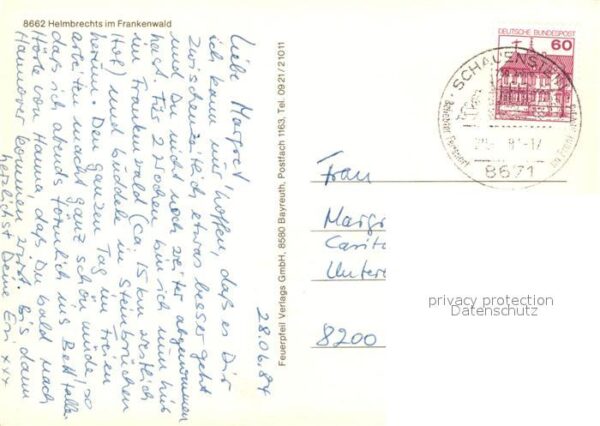 8662 Helmbrechts im Frankenwald
28.06.84
Liebe Margret,
ich kann nur hoffen, daß es Dir
zwischenzeitlich etwas besser geht
und Du nicht noch weiter abgenommen
hast. Für 2 Wochen bin ich nun hier
im Frankenwald (ca. 15 km westlich
Hof) und buddele in Steinbrüchen
herum. Den ganzen Tag im Freien
arbeiten macht ganz schön müde, so
daß ich abends förmlich ins Bett falle.
Hörte von Hanna, daß Du bald nach
Hannover kommen wirst. Bis dann
herzlichst Deine xxx
Feuerpfeil Verlags GmbH, 8580 Bayreuth, Postfach 1163, Tel. 0921/21011
DEUTSCHE BUNDESPOST
60
SCHAUENSTEIN
8671
Frau
Margr
Carita
Unter
8200
privacy protection
Datenschutz